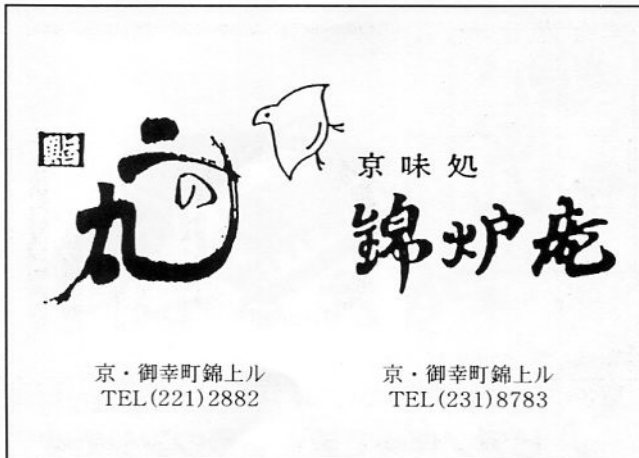 鮨
二の丸
京・御幸町錦上ル
TEL(221)2882
京味処
錦炉庵
京・御幸町錦上ル
TEL(231)8783